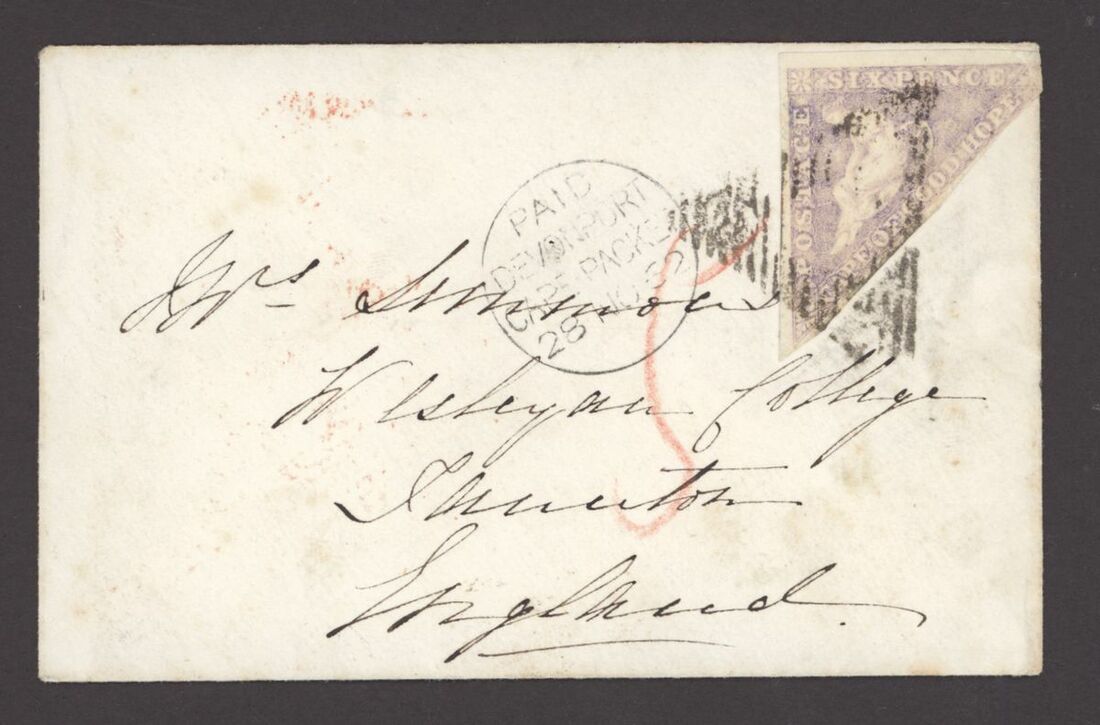 SIX PENCE
POSTAGE
OF GOOD HOPE
PAID
DEVONPORT
CAPE PACKET
28 NO 62
Mrs Simmons
Wesleyan College
Taunton
England